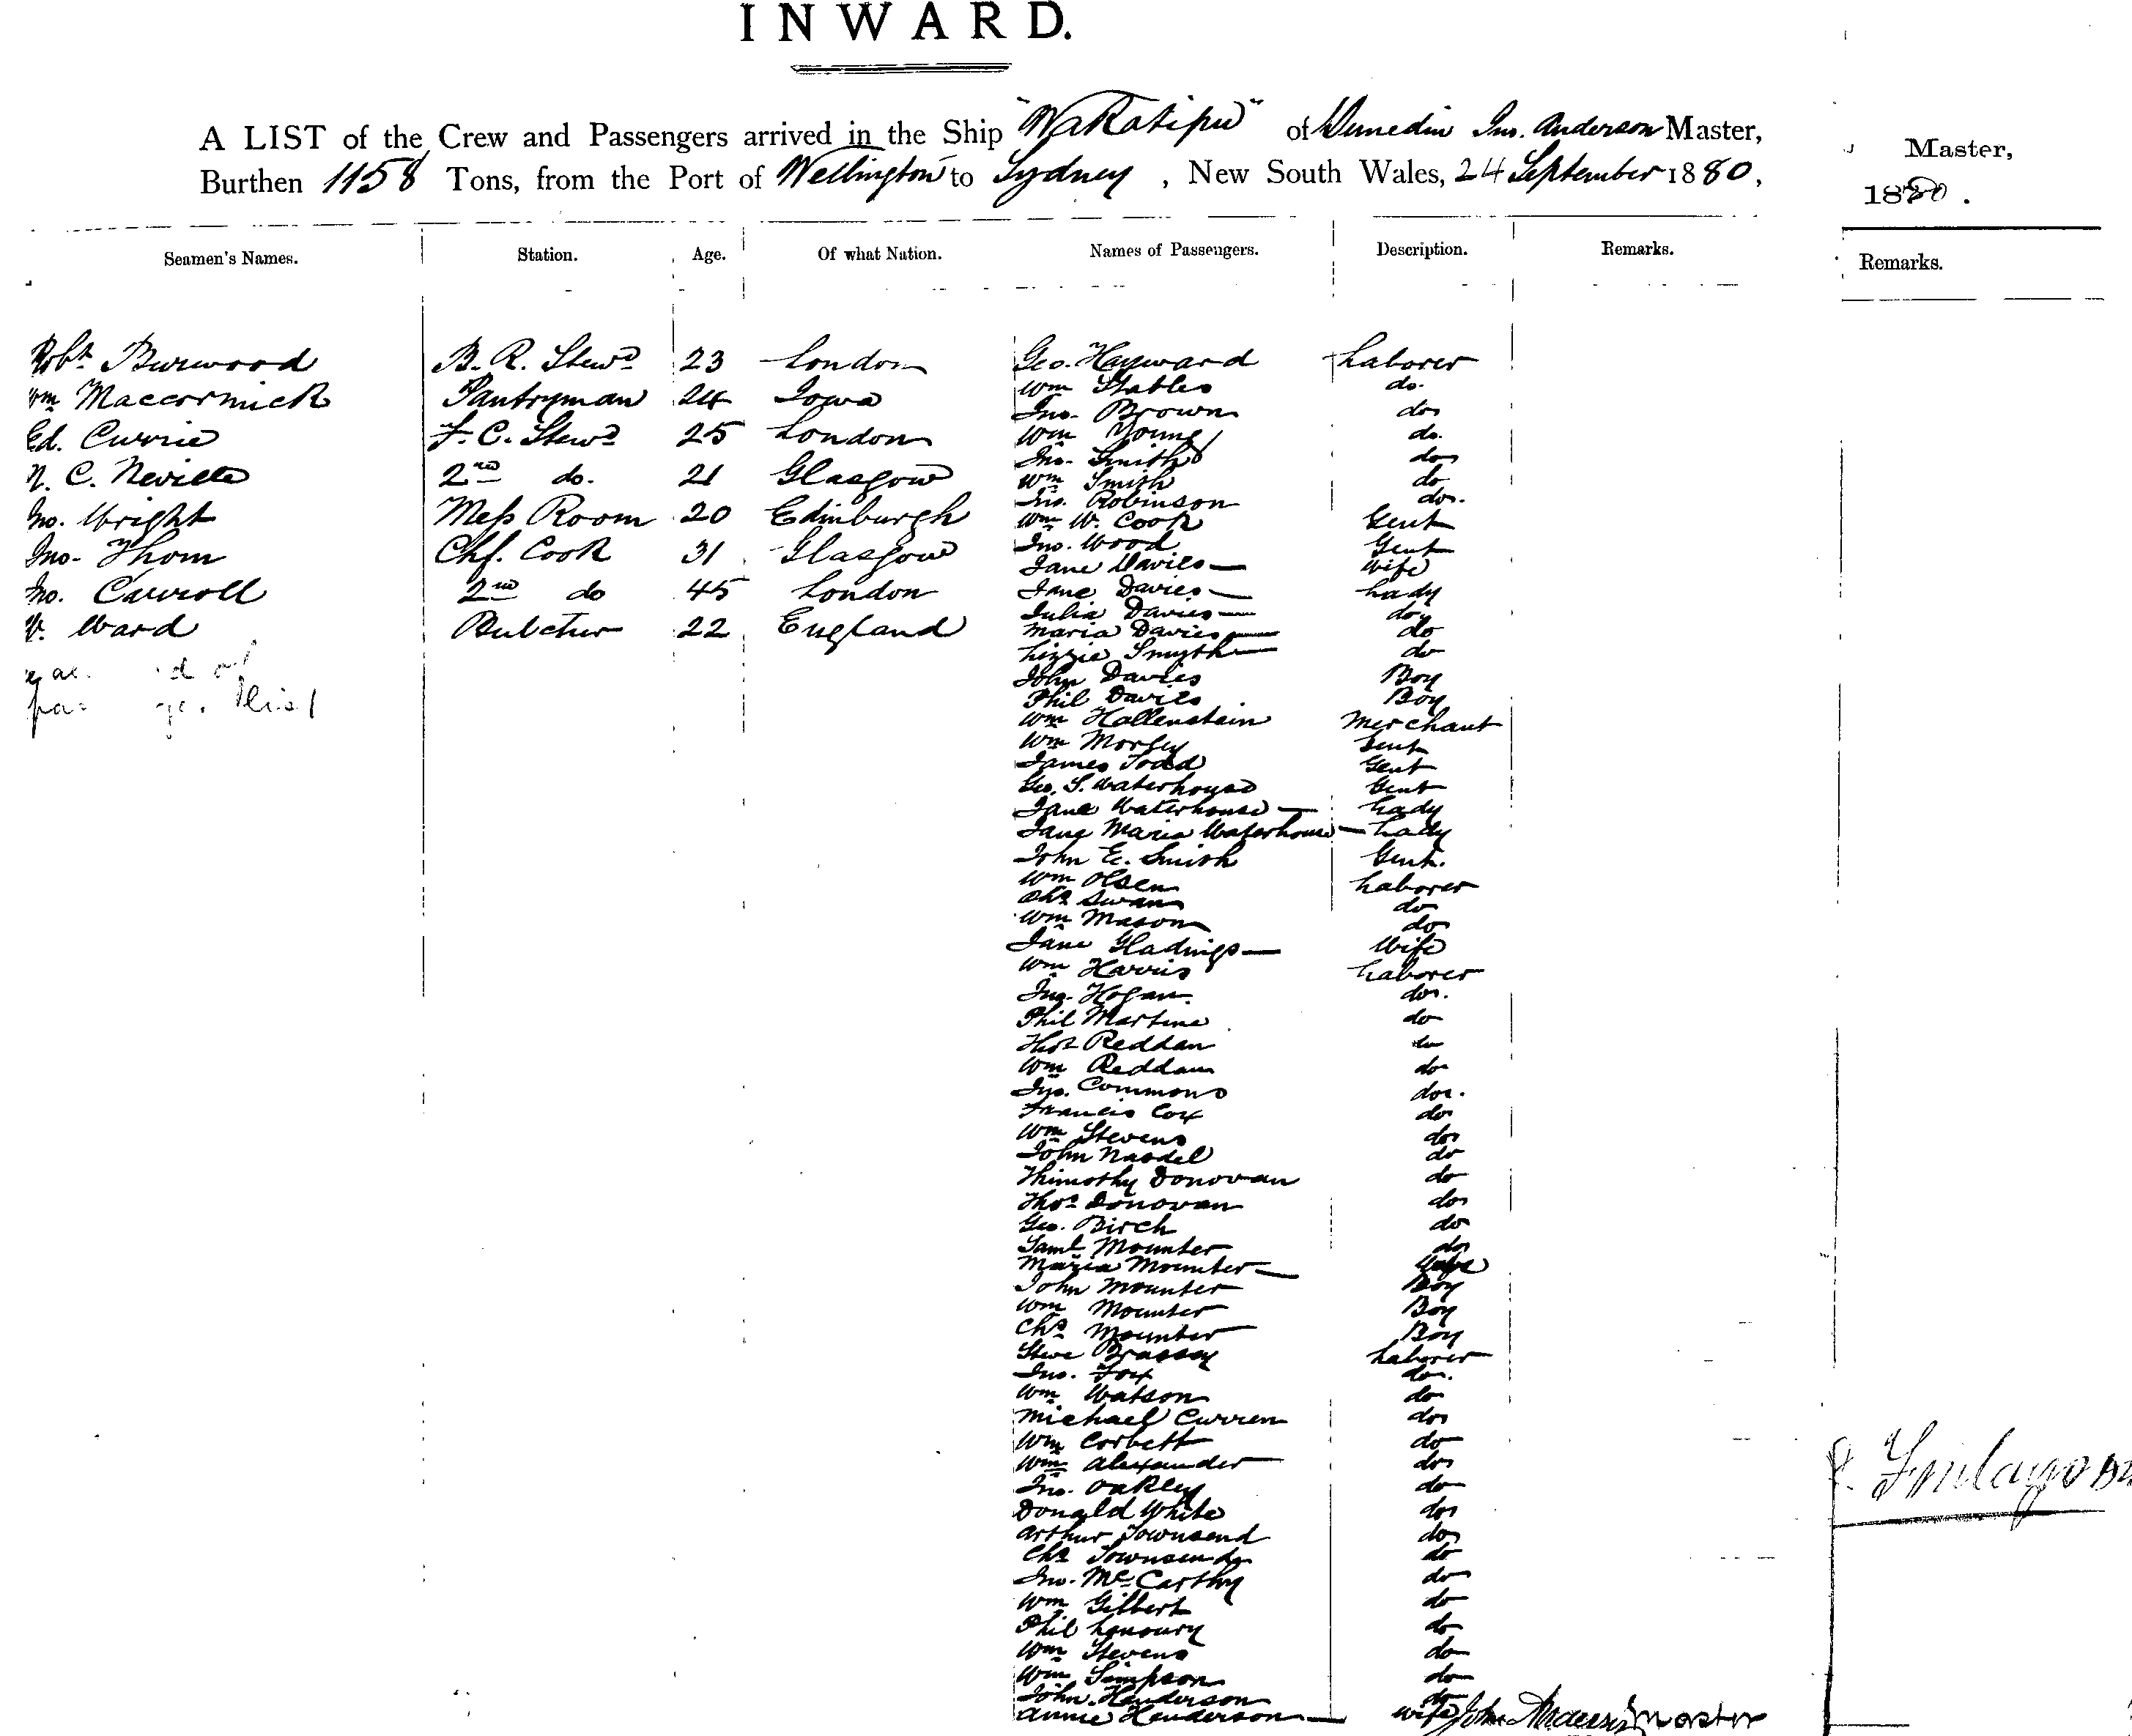 INWARD.
A LIST of the Crew and Passengers arrived in the Ship "Wakatipu" of Dunedin Jno. Anderson Master,
Burthen 1158 Tons, from the Port of Wellington to Sydney, New South Wales, 24 September 1880,
Master,
1880.
Seamen's Names. Station. Age. Of what Nation. Names of Passengers. Description. Remarks.
Remarks.
Robt Burwood B. R. Stewd 23 London
Wm Maccormick Pantryman 24 Iowa
Ed. Currie F. C. Stewd 25 London
N. C. Neville 2nd do. 21 Glasgow
Jno. Wright Mess Room 20 Edinburgh
Jno. Thom Chf. Cook 31 Glasgow
Jno. Carroll 2nd do 45 London
W. Ward Butcher 22 England
Geo. Hayward Laborer
Wm Stables do.
Jno. Brown do
Wm Young do.
Jno. Smith do
Wm Smith do
Jno. Robinson do.
Wm W. Cook Gent
Jno. Wood Gent
Jane Davies Wife
Jane Davies Lady
Julia Davies do
Maria Davies do
Lizzie Smyth do
John Davies Boy
Phil Davies Boy
Wm Hallenstein Merchant
Wm Morley Gent
James Todd Gent
Geo. S. Waterhouse Gent
Jane Waterhouse Lady
Jane Maria Waterhouse Lady
John E. Smith Gent.
Wm Olsen Laborer
Chs Swan do
Wm Mason do
Jane Gladings Wife
Wm Harris Laborer
Jno. Hogan do.
Phil Martine do
Thos Reddan do
Wm Reddan do
Jno. Commons do.
Francis Cox do
Wm Stevens do
John Nasdel do
Thimothy Donovan do
Thos Donovan do
Geo. Birch do
Saml Mounter do
Maria Mounter Wife
John Mounter Boy
Wm Mounter Boy
Chs Mounter Boy
Steve Brassey Laborer
Jno. Fox do.
Wm Watson do
Michael Curren do
Wm Corbett do
Wm Alexander do
Jno. Oakley do
Donald White do
Arthur Townsend do
Chs Townsend do
Jno. McCarthy do
Wm Gilbert do
Phil do
Wm Stevens do
Wm Simpson do
John Henderson do
Annie Henderson wife John Anderson Master